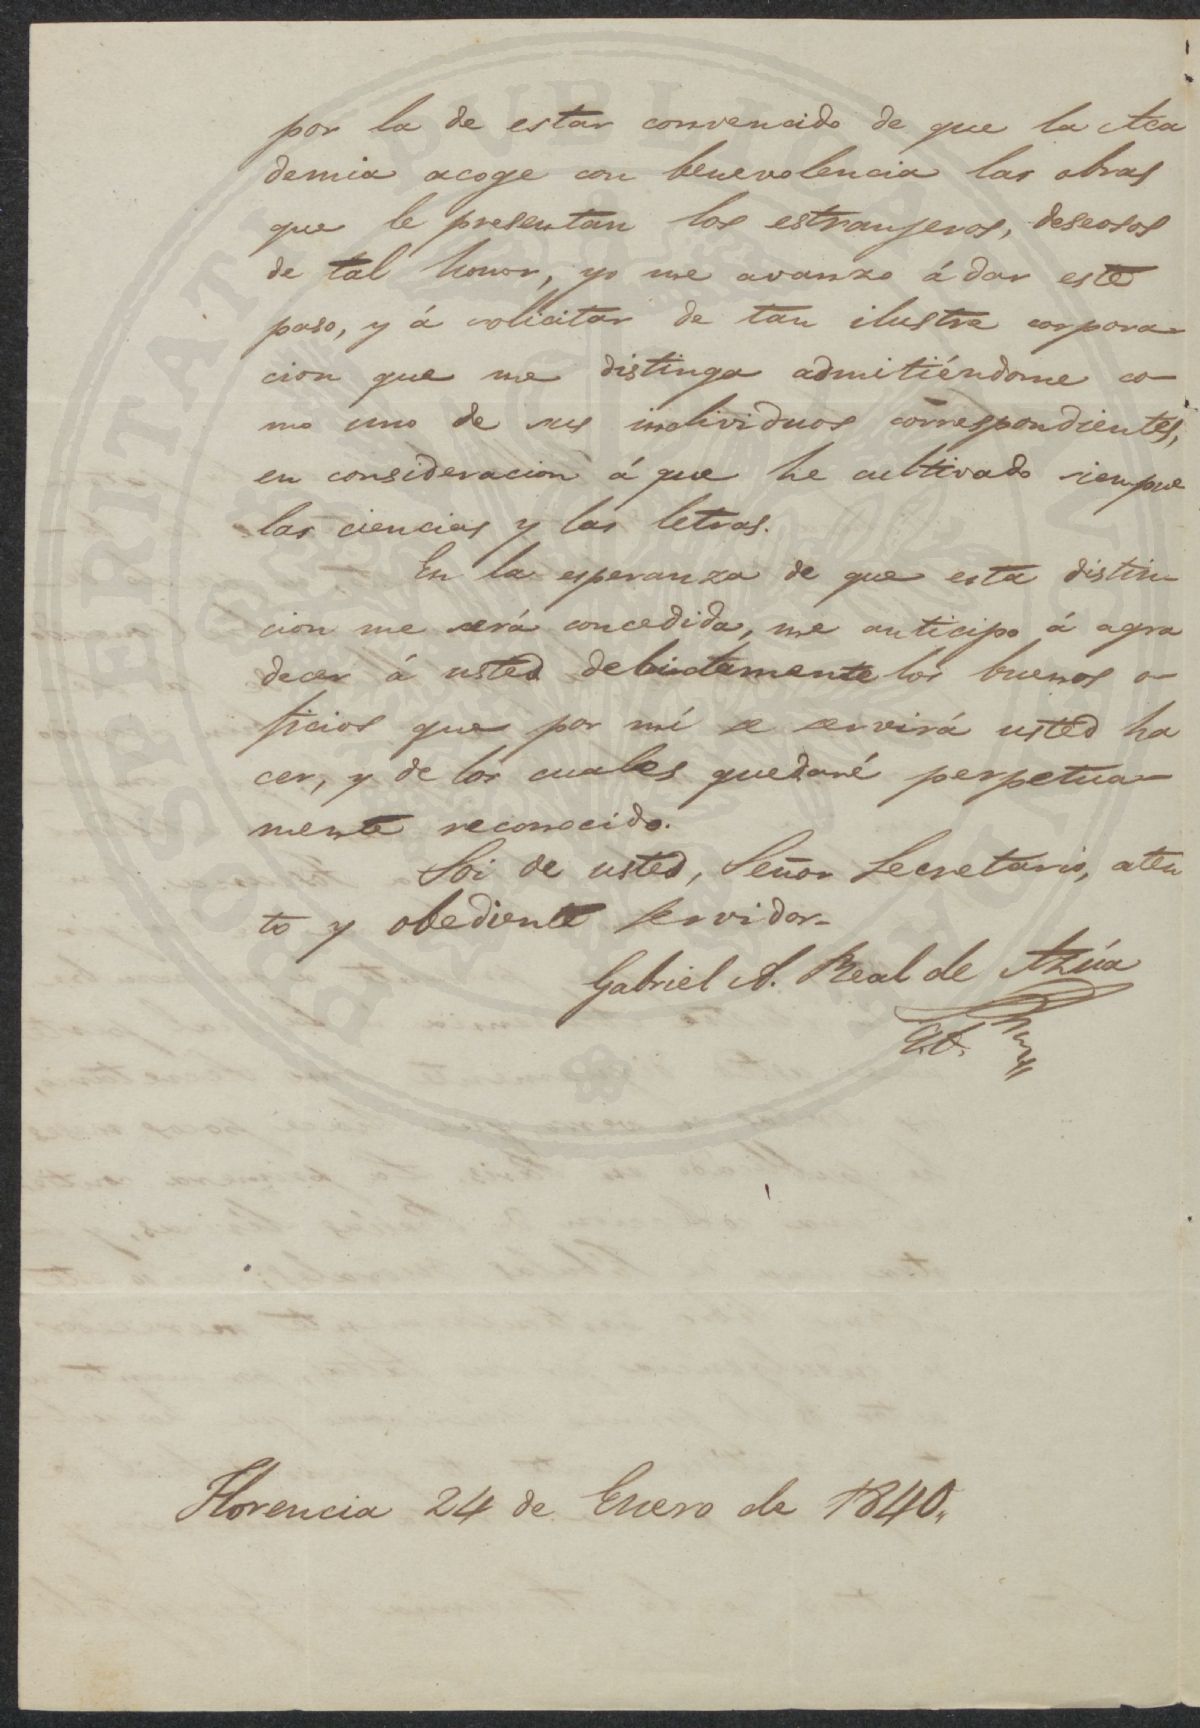 por la de estar convencido de que la Aca
demia acoge con benevolencia las obras
que le presentan los estranjeros, deseosos
de tal honor, yo me avanzo á dar este
paso, y á solicitar de tan ilustre corpora-
cion que me distinga admitiéndome co-
mo uno de sus individuos correspondientes,
en consideracion á que he cultivado siempre
las ciencias y las letras.
En la esperanza de que esta distin-
cion me será concedida, me anticipo á agra
decer á usted debidamente los buenos o-
ficios que por mí se servirá usted ha
cer, y de los cuales quedaré perpetua-
mente reconocido.
Soi de usted, Señor Secretario, aten
to y obediente servidor-
Gabriel A. Real de Azúa
Florencia 24 de Enero de 1840.